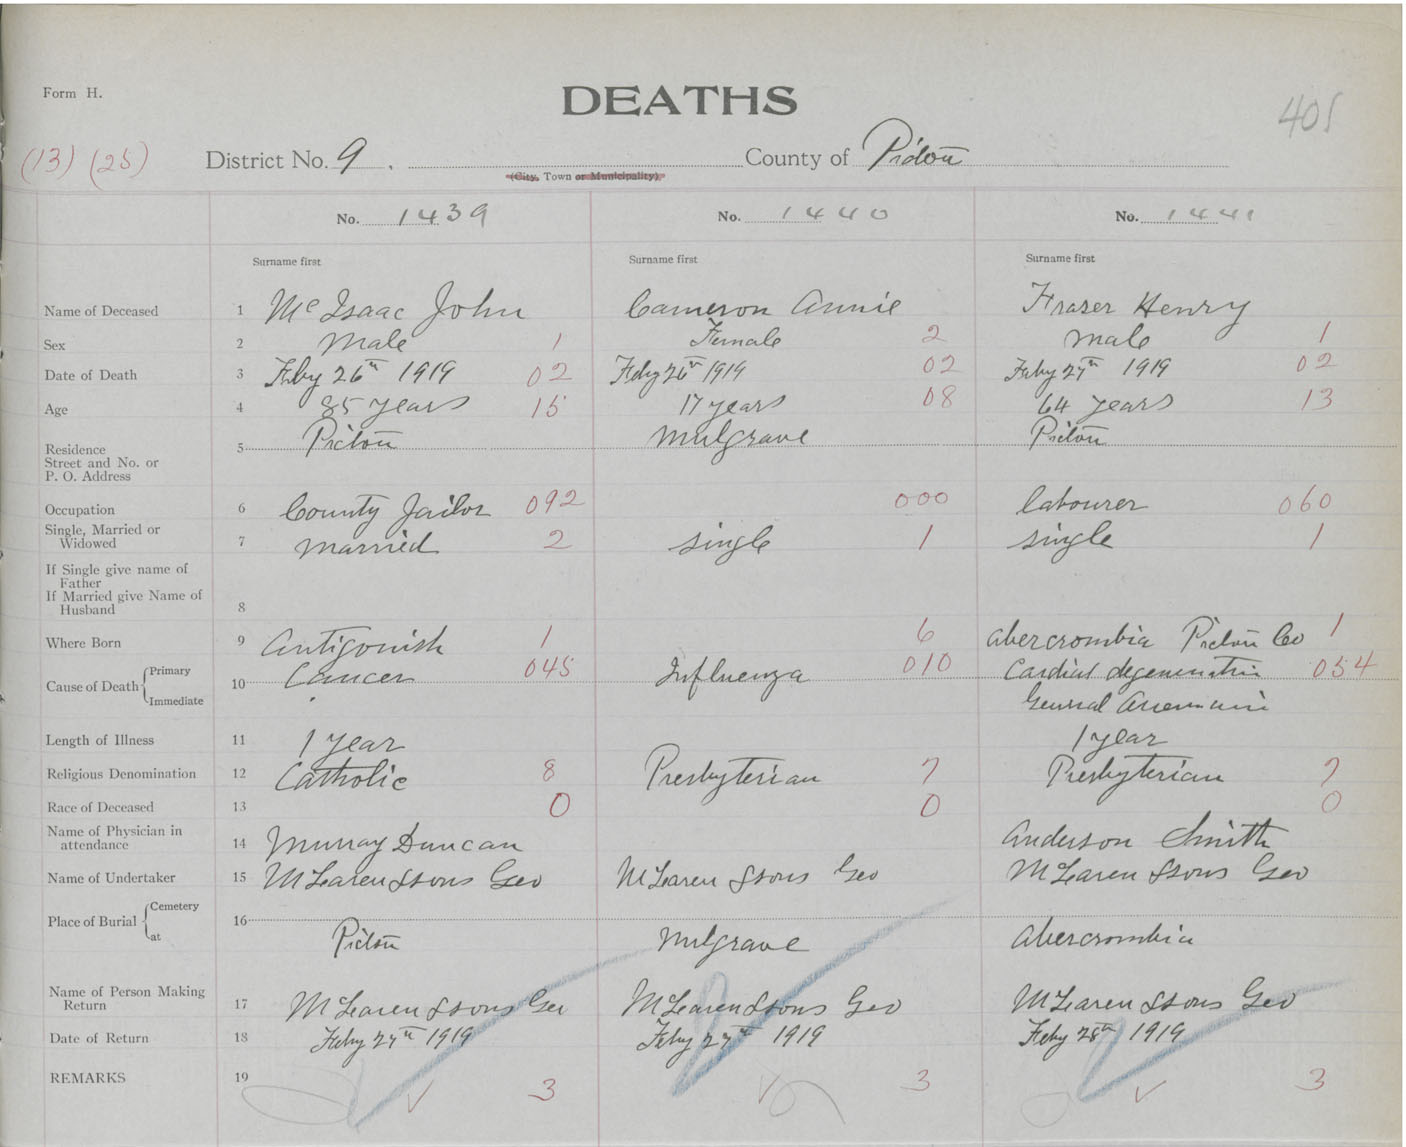 Form H.
DEATHS
401
(13) (25) District No. 9. County of Pictou
(City, Town or Municipality)
No. 1439 No. 1440 No. 1441
Surname first Surname first Surname first
Name of Deceased 1 McIsaac John Cameron Annie Fraser Henry
Sex 2 Male 1 Female 2 Male 1
Date of Death 3 Feby 26th 1919 02 Feby 26th 1919 02 Feby 27th 1919 02
Age 4 85 years 15 17 years 08 64 years 13
Residence
Street and No. or
P. O. Address 5 Pictou Mulgrave Pictou
Occupation 6 County Jailor 092 000 labourer 060
Single, Married or
Widowed 7 married 2 single 1 single 1
If Single give name of
Father
If Married give Name of
Husband 8
Where Born 9 Antigonish 1 6 Abercrombia Pictou Co 1
Cause of Death Primary 10 Cancer 045 Influenza 010 Cardial degeneration 054
Immediate General
Length of Illness 11 1 year 1 year
Religious Denomination 12 Catholic 8 Presbyterian 7 Presbyterian 7
Race of Deceased 13 0 0 0
Name of Physician in
attendance 14 Murray Duncan Anderson Smith
Name of Undertaker 15 McLaren & Sons Geo McLaren & Sons Geo McLaren & Sons Geo
Place of Burial Cemetery 16
at Pictou Mulgrave Abercrombia
Name of Person Making
Return 17 McLaren & Sons Geo McLaren & Sons Geo McLaren & Sons Geo
Date of Return 18 Feby 27th 1919 Feby 27th 1919 Feby 28th 1919
REMARKS 19 3 3 3